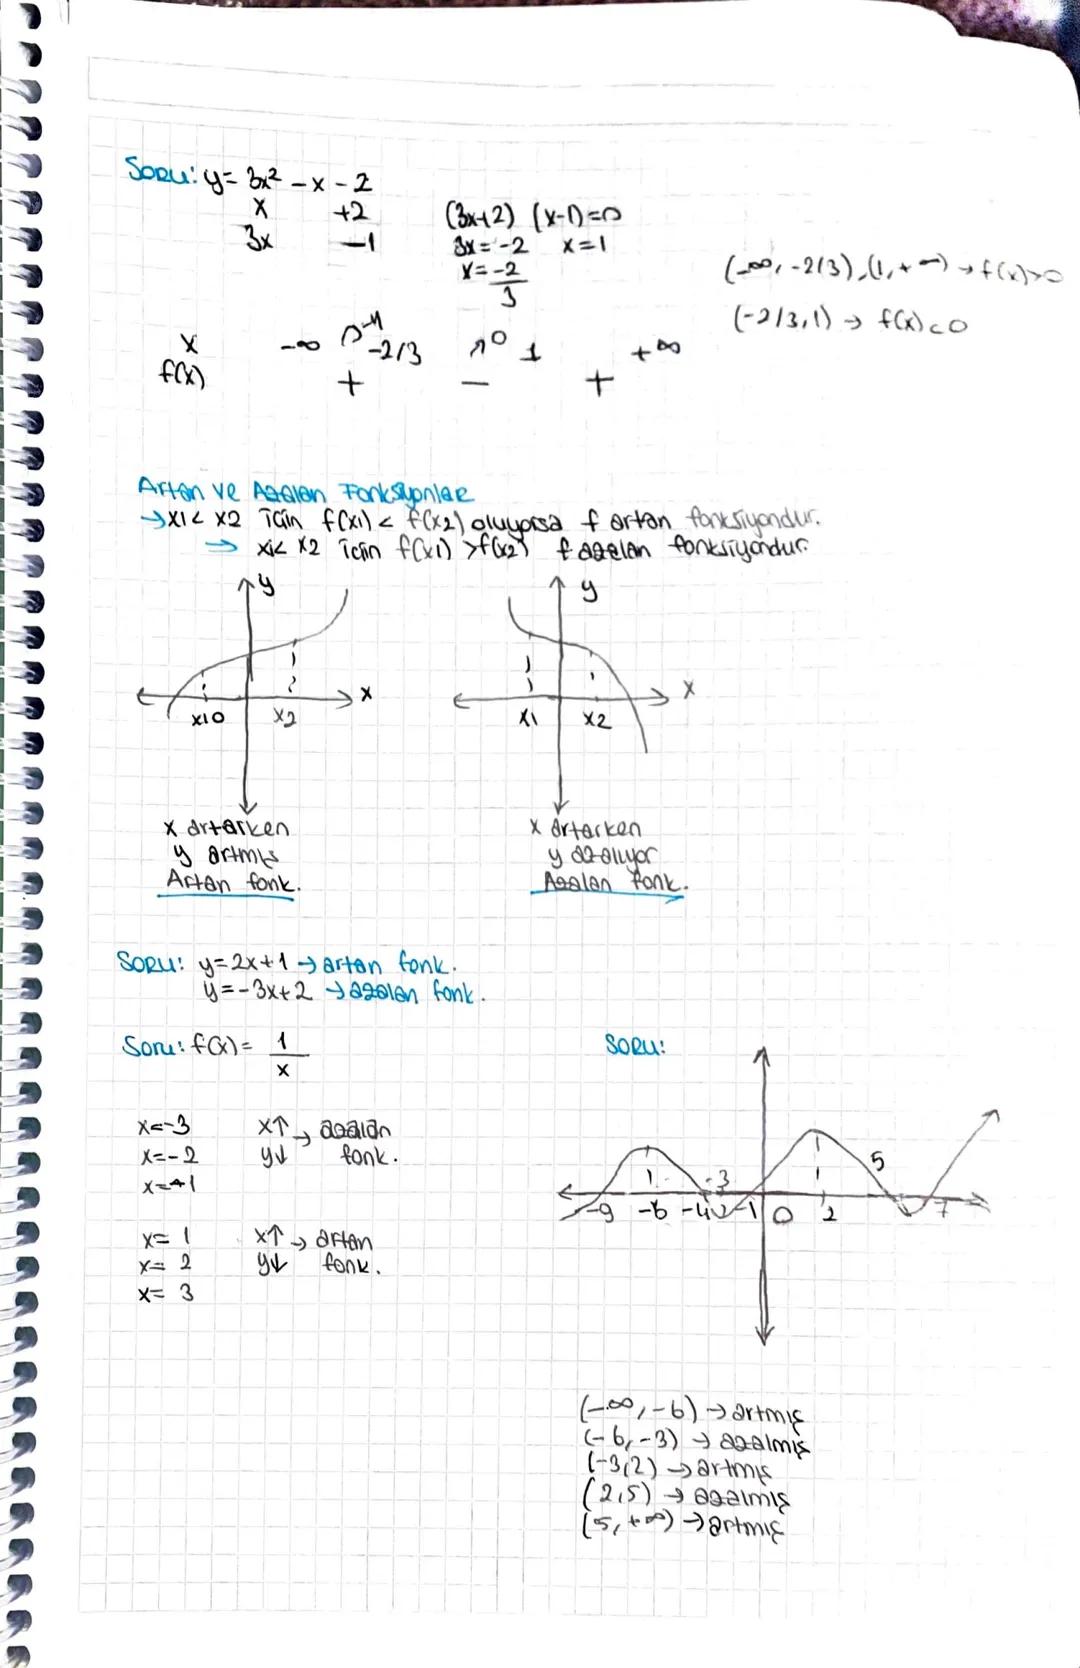 Soru: y= 3x² - x - 2
x +2
3x -1
(3x+2) (x-1)=0
3x = -2 x=1
x= -2
3
(-∞, -2/3), (1, +∞) → f(x)>0
(-2/3, 1) → f(x)<0
x -∞ -2/3 1 +∞
f(x) + - +
Artan ve Azalan Fonksiyonlar
→ x1 < x2 için f(x1) < f(x2) oluyorsa f artan fonksiyondur.
→ x1 < x2 için f(x1) > f(x2) f azalan fonksiyondur.
y
y
x
x
x1 0 x2
x1 x2
x artarken
y artmış
Artan fonk.
x artarken
y azalıyor
Azalan fonk.
Soru: y=2x+1 → artan fonk.
y=-3x+2 → azalan fonk.
Soru: f(x) = 1
x
x=-3 x↑ → azalan
x=-2 y↓ fonk.
x=-1
x= 1 x↑ → artan
x= 2 y↓ fonk.
x= 3
Soru:
-3 5
-9 -6 -4 -1 0 2 7
(-∞, -6) → artmış
(-6, -3) → azalmış
(-3, 2) → artmış
(2, 5) → azalmış
(5, +∞) → artmış